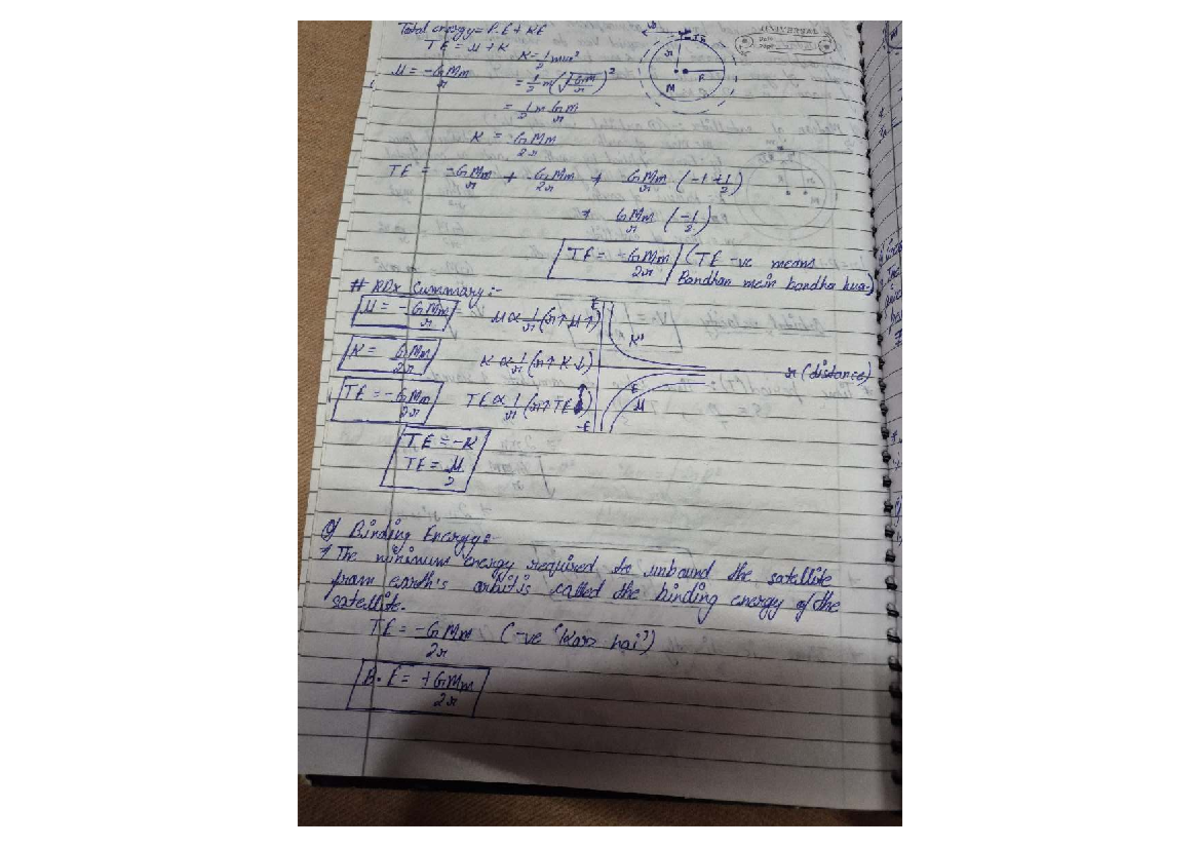 Total energy = P.E + KE
TE = U + K
K = 1/2 mv²
U = -GMm/r
= 1/2 m(√GM/r)²
= 1/2 m GM/r
K = GMm/2r
R
M
UNIVERSAL
TE = -GMm/r + GMm/2r + GMm/r (-1+1/2)
GMm/r (-1/2)
TE = -GMm/2r (TE -ve means
Bandhan mein bandha hua)
# RDx Summary:-
U = -GMm/r U ∝ 1/r (r↑ U↑)
K = GMm/2r K ∝ 1/r (r↑ K↓)
TE = -GMm/2r TE ∝ 1/r (r↑ TE↑)
E
K
r (distance)
E
U
-E
TE = -K
TE = U/2
Binding Energy:-
→ The minimum energy required to unbound the satellite
from earth's orbit is called the binding energy of the
satellite.
TE = -GMm/2r (-ve "Karz hai")
B.E = +GMm/2r